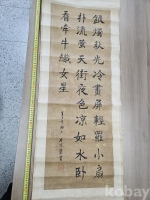 銀燭秋光冷畫屏輕羅小扇
扑流螢天街夜色凉如水卧
看牽牛織女星
kobay